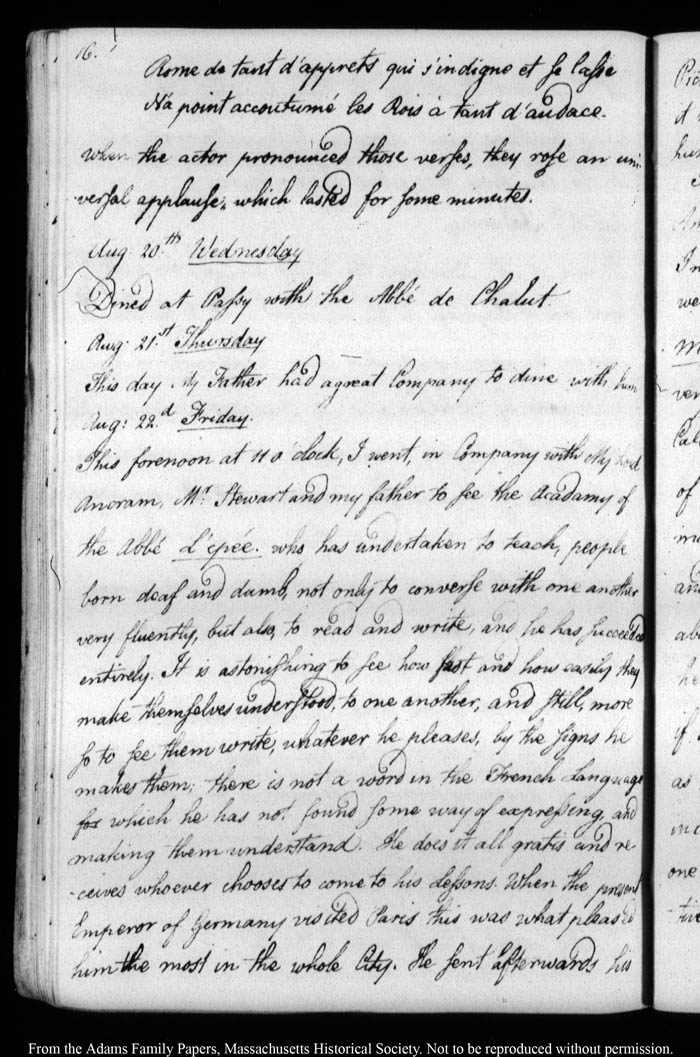 16.
Rome de tant d'apprets qui s'indigne et se lasse
N'a point accoutumé les Rois à tant d'audace.
when the actor pronounced those verses, they rose an uni-
versal applause, which lasted for some minutes.
Aug: 20.th Wednesday
Dined at Passy with the Abbé de Chalut
Aug: 21.st Thursday
This day My Father had a great Company to dine with him
Aug: 22.d Friday.
This forenoon at 11 o'clock, I went, in Company with My Lord
Ancram, Mr. Stewart and my father to see the Acadamy of
the Abbé L'epée. who has undertaken to teach, people
born deaf and dumb, not only to converse with one another
very fluently, but also, to read and write, and he has succeeded
entirely. It is astonishing to see how fast and how easily they
make themselves understood, to one another, and still, more
so to see them write, whatever he pleases, by the signs he
makes them; there is not a word in the French Language
for which he has not found some way of expressing, and
making them understand. He does it all gratis and re-
-ceives whoever chooses to come to his Lessons. When the present
Emperor of Germany visited Paris this was what pleas'd
him the most in the whole City. He sent afterwards his
From the Adams Family Papers, Massachusetts Historical Society. Not to be reproduced without permission.